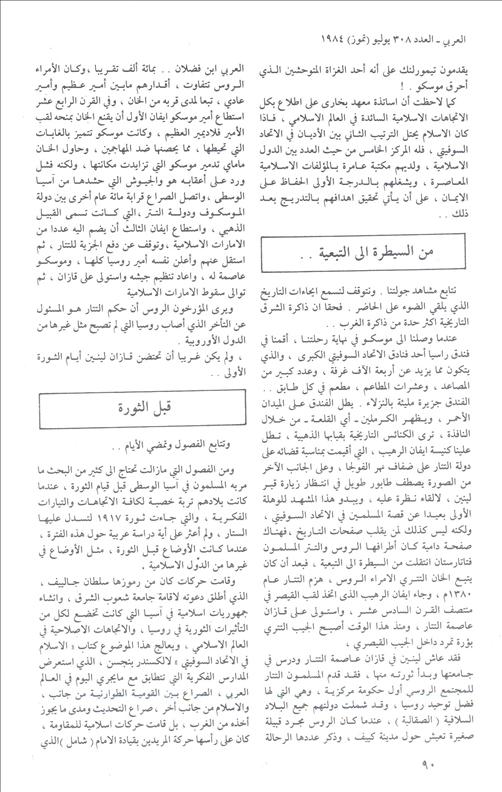 العربي - العدد ٣٠٨ يوليو (تموز) ١٩٨٤
يقدمون تيمورلنك على أنه أحد الغزاة المتوحشين الذي
أحرق موسكو . !
كما لاحظت أن اساتذة معهد بخارى على اطلاع بكل
الاتجاهات الاسلامية السائدة في العالم الاسلامي ، فاذا
كان الاسلام يحتل الترتيب الثاني بين الأديان في الاتحاد
السوفيتي ، فله المركز الخامس من حيث العدد بين الدول
الاسلامية ، ولديهم مكتبة عامرة بالمؤلفات الاسلامية
المعاصرة ، ويشغلهم بالدرجة الأولى الحفاظ على
الايمان ، على أن يأتي تحقيق اهدافهم بالتدريج بعد
ذلك ..
من السيطرة الى التبعية ..
نتابع مشاهد جولتنا . ونتوقف لنسمع ايحاءات التاريخ
الذي يلقي الضوء على الحاضر . فحقا ان ذاكرة الشرق
التاريخية اكثر حدة من ذاكرة الغرب ..
عندما وصلنا الى موسكو في نهاية رحلتنا ، أقمنا في
فندق راسيا أحد فنادق الاتحاد السوفيتي الكبرى ، والذي
يتكون مما يزيد عن أربعة آلاف غرفة ، وعدد كبير من
المصاعد ، وعشرات المطاعم ، مطعم في كل طابق ..
الفندق جزيرة مليئة بالنزلاء . يطل الفندق على الميدان
الأحمر ، ويظهر الكرملين - أي القلعة - من خلال
النافذة ، ترى الكنائس التاريخية بقبابها الذهبية ، تطل
علينا كنيسة ايفان الرهيب ، التي أقيمت بمناسبة قضائه على
دولة التتار على ضفاف نهر الفولجا ، وعلى الجانب الآخر
من الصورة يصطف طابور طويل في انتظار زيارة قبر
لينين ، لالقاء نظرة عليه ، ويبدو هذا المشهد للوهلة
الأولى بعيدا عن قصة المسلمين في الاتحاد السوفيتي ،
ولكنه ليس كذلك لمن يقلب صفحات التاريخ ، فهناك
صفحة دامية كان أطرافها الروس والتتر المسلمون
فتتارستان انتقلت من السيطرة الى التبعية ، فبعد أن كان
يتبع الخان التتري الامراء الروس ، هزم التتار عام
١٣٨٠م ، وجاء ايفان الرهيب الذى اتخذ لقب القيصر في
منتصف القرن السادس عشر ، واستولى على قازان
عاصمة التتار ، ومنذ هذا الوقت أصبح الجيب التتري
بؤرة تمرد داخل الجيب القيصري ،
فقد عاش لينين في قازان عاصمة التتار ودرس في
جامعتها وبدأ ثورته منها ، فقد قدم المسلمون التتار
للمجتمع الروسي أول حكومة مركزية ، وهي التي لها
فضل توحيد روسيا ، وقد شملت دولتهم جميع البلاد
السلافية ( الصقالبة ) ، عندما كان الروس مجرد قبيلة
صغيرة تعيش حول مدينة كييف ، وذكر عددها الرحالة
العربي ابن فضلان .. بمائة ألف تقريبا ، وكان الأمراء
الروس تتفاوت ، أقدارهم مابين أمير عظيم وأمير
عادي ، تبعا لمدى قربه من الخان ، وفي القرن الرابع عشر
استطاع أمير موسكو ايفان الأول أن يقنع الخان بمنحه لقب
الأمير فلاديمير العظيم ، وكانت موسكو تتميز بالغابات
التي تحيطها ، مما يحصنها ضد المهاجمين ، وحاول الخان
ماماي تدمير موسكو التي تزايدت مكانتها ، ولكنه فشل
ورد على أعقابه هو والجيوش التي حشدها من آسيا
الوسطى ، واتصل الصراع قرابة مائة عام أخرى بين دولة
الموسكوف ودولة التتر ، التي كانت تسمى القبيل
الذهبي ، واستطاع ايفان الثالث أن يضم اليه عددا من
الامارات الاسلامية ، وتوقف عن دفع الجزية للتتار ، ثم
استقل عنهم وأعلن نفسه أمير روسيا كلها ، وموسكو
عاصمة له ، واعاد تنظيم جيشه واستولى على قازان ، ثم
توالى سقوط الامارات الاسلامية
ويرى المؤرخون الروس أن حكم التتار هو المسئول
عن التأخر الذي أصاب روسيا التي لم تصبح مثل غيرها من
الدول الأوروبية .
، ولم يكن غريبا أن تحتضن قازان لينين أيام الثورة
الأولى ..
قبل الثورة
وتتابع الفصول وتمضي الأيام ..
ومن الفصول التي مازالت تحتاج الى كثير من البحث ما
مر به المسلمون في آسيا الوسطى قبل قيام الثورة ، عندما
كانت بلادهم تربة خصبة لكافة الاتجاهات والتيارات
الفكرية ، والتي جاءت ثورة ١٩١٧ لتسدل عليها
الستار ، ولم أعثر على أية دراسة عربية حول هذه الفترة ،
عندما كانت الأوضاع قبل الثورة ، مثل الأوضاع في
غيرها من الدول الاسلامية .
وقامت حركات كان من رموزها سلطان جالييف ،
الذي أطلق دعوته لاقامة جامعة شعوب الشرق ، وانشاء
جمهوريات اسلامية في آسيا التي كانت تخضع لكل من
التأثيرات الثورية في روسيا ، والاتجاهات الاصلاحية في
العالم الاسلامي ، ويعالج هذا الموضوع كتاب « الاسلام
في الاتحاد السوفيتي » لالكسندر بنجسن ، الذي استعرض
المدارس الفكرية التي تتطابق مع مايجري اليوم في العالم
العربي ، الصراع بين القومية الطورانية من جانب ،
والاسلام من جانب أخر ، صراع التحديث ومدى ما يجوز
أخذه من الغرب ، بل قامت حركات اسلامية للمقاومة ،
كان على رأسها حركة المريدين بقيادة الامام ( شامل ) الذي
٩٠